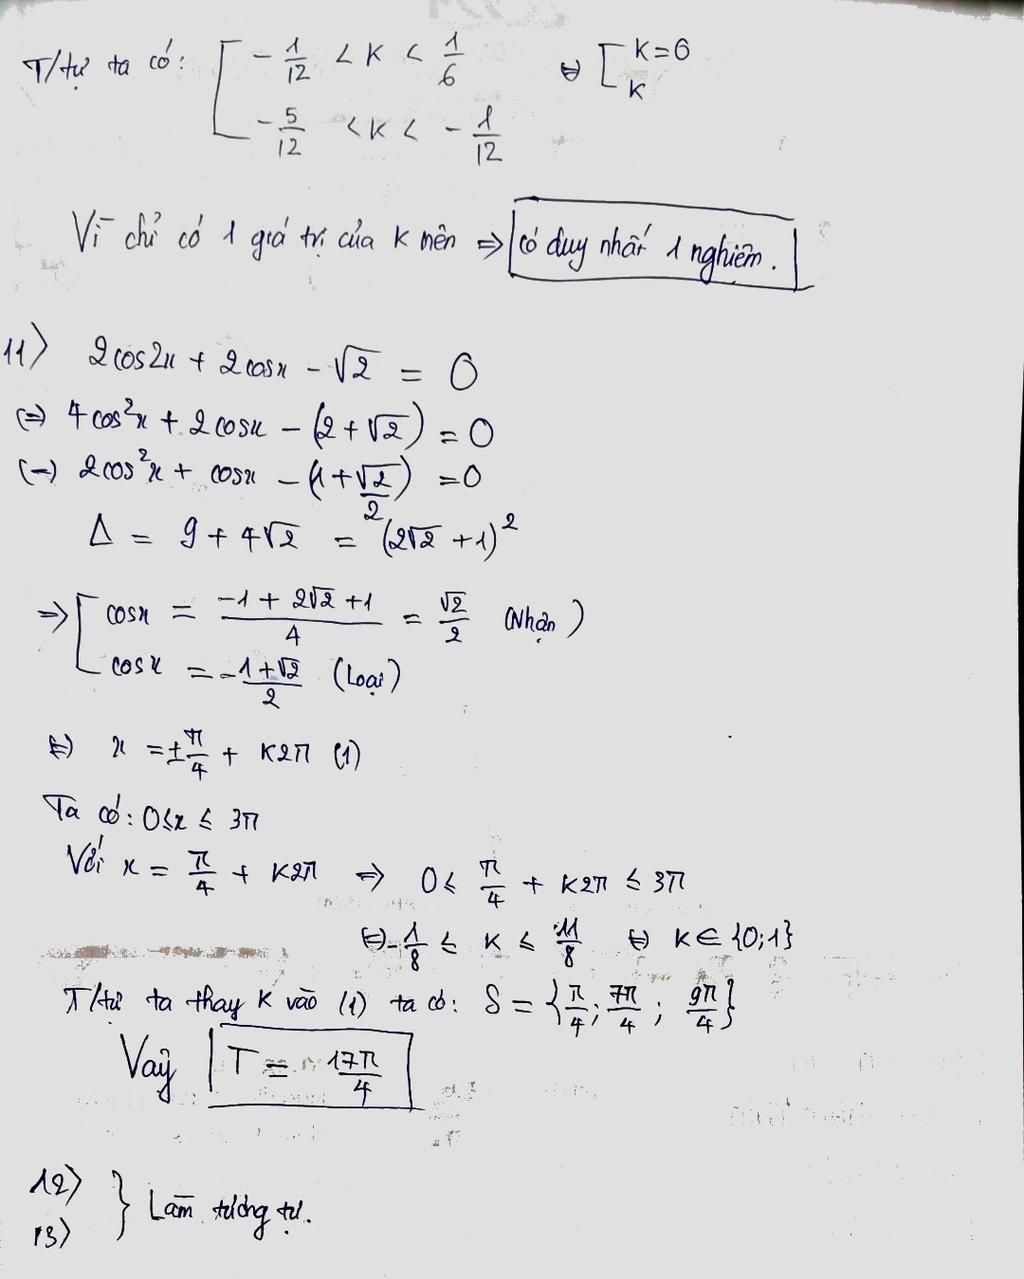 T/tự ta có: [ -1/12 < K < 1/6 ⇔ [ K=0
-5/12 < K < -1/12 K
Vì chỉ có 1 giá trị của K nên ⇒ có duy nhất 1 nghiệm.
11) 2cos2x + 2cosx - √2 = 0
(=) 4cos²x + 2cosx - (2+√2) = 0
(=) 2cos²x + cosx - (1+√2/2) = 0
Δ = 9 + 4√2 = (2√2 + 1)²
⇒ [ cosx = (-1 + 2√2 + 1)/4 = √2/2 (Nhận)
cosx = -(1+√2)/2 (Loại)
⇔ x = ±π/4 + K2π (1)
Ta có: 0≤x ≤ 3π
Với x = π/4 + K2π ⇒ 0 ≤ π/4 + K2π ≤ 3π
⇔ -1/8 ≤ K ≤ 11/8 ⇔ K ∈ {0;1}
T/tự ta thay K vào (1) ta có: S = {π/4; 7π/4; 9π/4}
Vậy T = 17π/4
12)
13) } Làm tương tự.